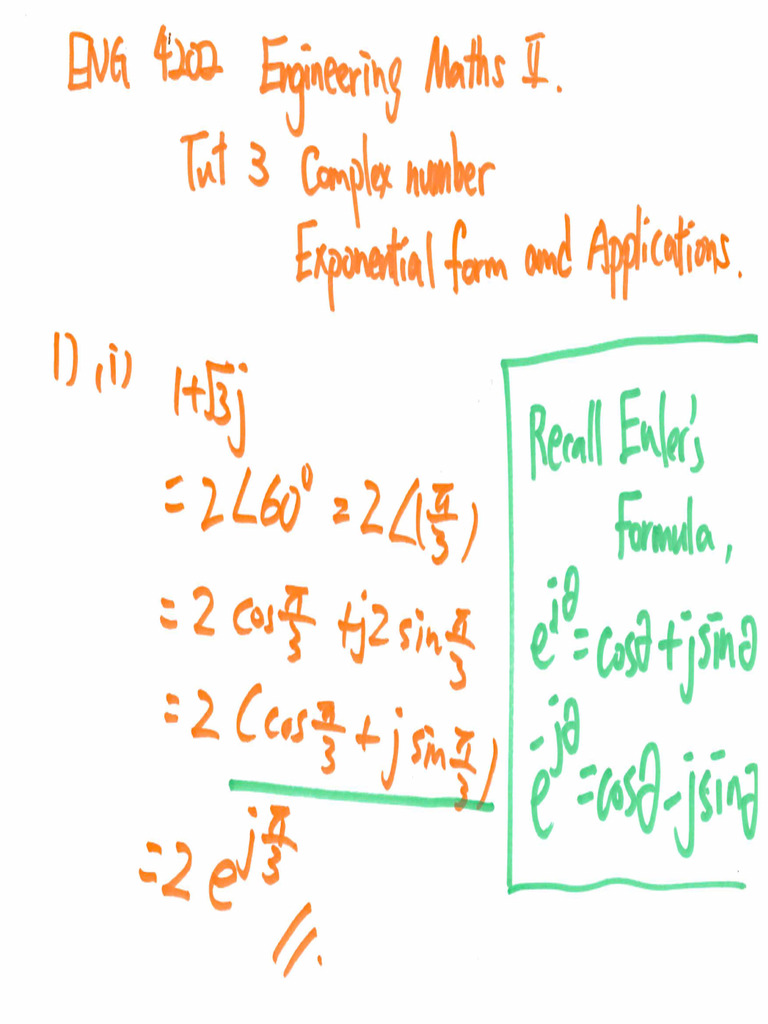 ENG 4202 Engineering Maths II.
Tut 3 Complex number
Exponential form and Applications.
1) ,i) 1+√3j
= 2∠60° = 2∠(π/3)
= 2 cos π/3 + j2 sin π/3
= 2 (cos π/3 + j sin π/3)
= 2 e^(j π/3) //.
Recall Euler's
Formula,
e^(j∂) = cos∂ + j sin∂
e^(-j∂) = cos∂ - j sin∂